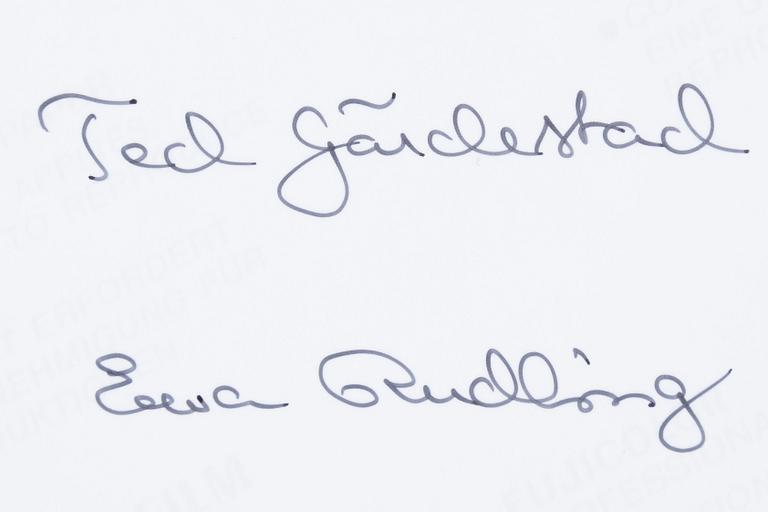 Ted Gärdestad
Ewa Rudling